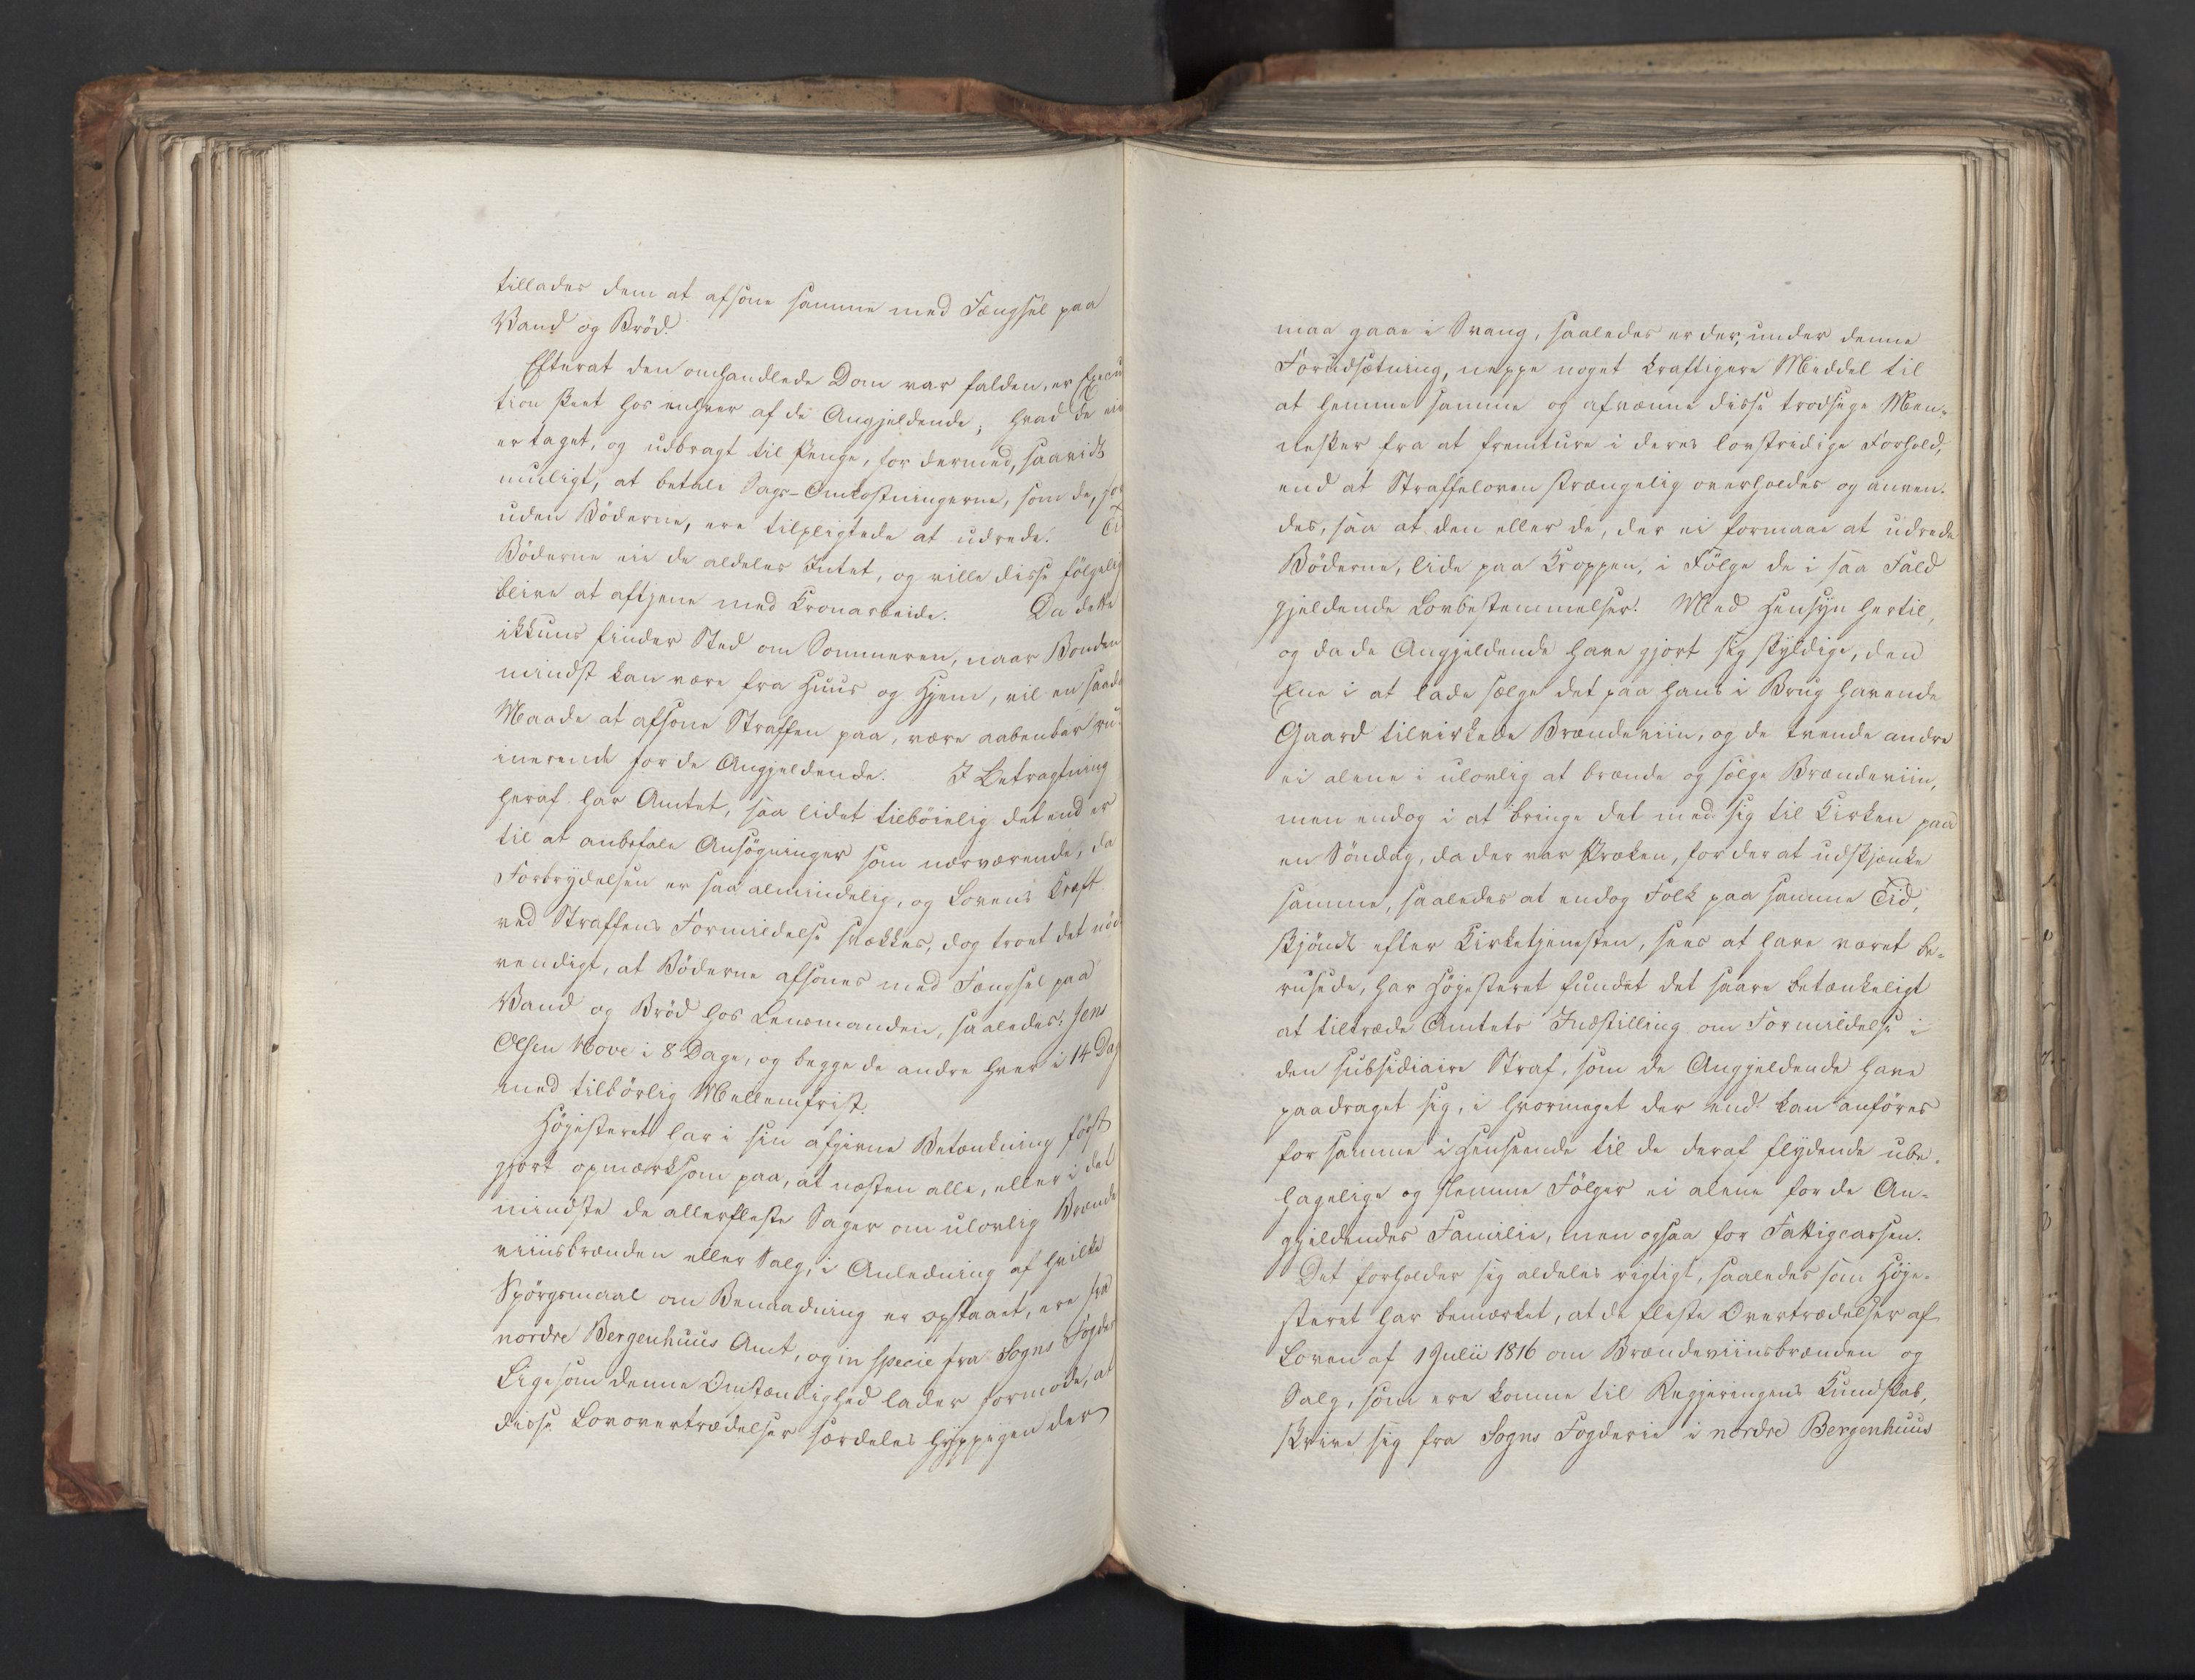 tillades dem at afsone samme med Fængsel paa
Vand og Bröd.
Efterat den omhandlede Dom var falden, er Execu
tion skeet hos enhver af de Angjeldende; hvad de eie
er taget, og udbragt til Penge, for dermed, saavidt
muligt, at betale Sags-Omkostningerne, som de, for
uden Böderne, ere tilpligtede at udrede. Til
Böderne eie de aldeles Intet, og ville disse fölgelig
blive at aftjene med Kronarbeide. Da dette
ikkuns finder Sted om Sommeren, naar Bonden
mindst kan være fra Huus og Hjem, vil en saadan
Maade at afsone Straffen paa, være aabenbar ru-
inerende for de Angjeldende. I Betragtning
heraf har Amtet, saa lidet tilböielig det end er
til at anbefale Ansögninger som nærværende, da
Forbrydelsen er saa almindelig, og Lovens Kraft
ved Straffens Formildelse svækkes, dog troet det nöd
vendigt, at Böderne afsones med Fængsel paa
Vand og Bröd hos Lensmanden, saaledes: Jens
Olsen Hove i 8 Dage, og begge de andre hver i 14 Dage
med tilbörlig Mellemfrist.
Höjesteret har i sin afgivne Betænkning först
gjort opmærksom paa, at næsten alle, eller i det
mindste de allerfleste Sager om ulovlig Brænde
viinsbrænden eller Salg, i Anledning af hvilke
Spörgsmaal om Benaadning er opstaaet, ere fra
nordre Bergenhuus Amt, og in specie fra Sogns Fogderie
Ligesom denne Omstændighed lader formode, at
disse Lovovertrædelser særdeles hyppigen der
maa gaae i Svang, saaledes er der, under denne
Forudsætning, neppe noget kraftigere Middel til
at hemme samme og afvænne disse trodsige Men-
nesker fra at fremture i deres lovstridige Forhold,
end at Straffeloven strængelig overholdes og anven-
des, saa at den eller de, der ei formaae at udrede
Böderne, lide paa Kroppen, i Fölge de i saa Fald
gjeldende Lovbestemmelser. Med Hensyn hertil,
og da de Angjeldende have gjort sig skyldige, den
Ene i at lade sælge det paa hans i Brug havende
Gaard tilvirkede Brændeviin, og de tvende andre
ei alene i ulovlig at brænde og sælge Brændeviin,
men endog i at bringe det med sig til Kirken paa
en Söndag, da der var Præken, for der at udskjænke
samme, saaledes at endog Folk paa samme Tid,
skjöndt efter Kirketjenesten, sees at have været be-
rusede, har Höjesteret fundet det saare betænkeligt
at tiltræde Amtets Indstilling om Formildelse i
den subsidiaire Straf, som de Angjeldende have
paadraget sig, i hvormeget der end kan anföres
for samme i Henseende til de deraf flydende ube-
hagelige og slemme Fölger ei alene for de An-
gjeldendes Familie, men ogsaa for Fattigcassen.
Det forholder sig aldeles rigtigt, saaledes som Höje-
steret har bemærket, at de fleste Overtrædelser af
Loven af 1 Julii 1816 om Brændeviinsbrænden og
Salg, som ere komne til Regjeringens Kundskab,
skrive sig fra Sogns Fogderie i nordre Bergenhuus